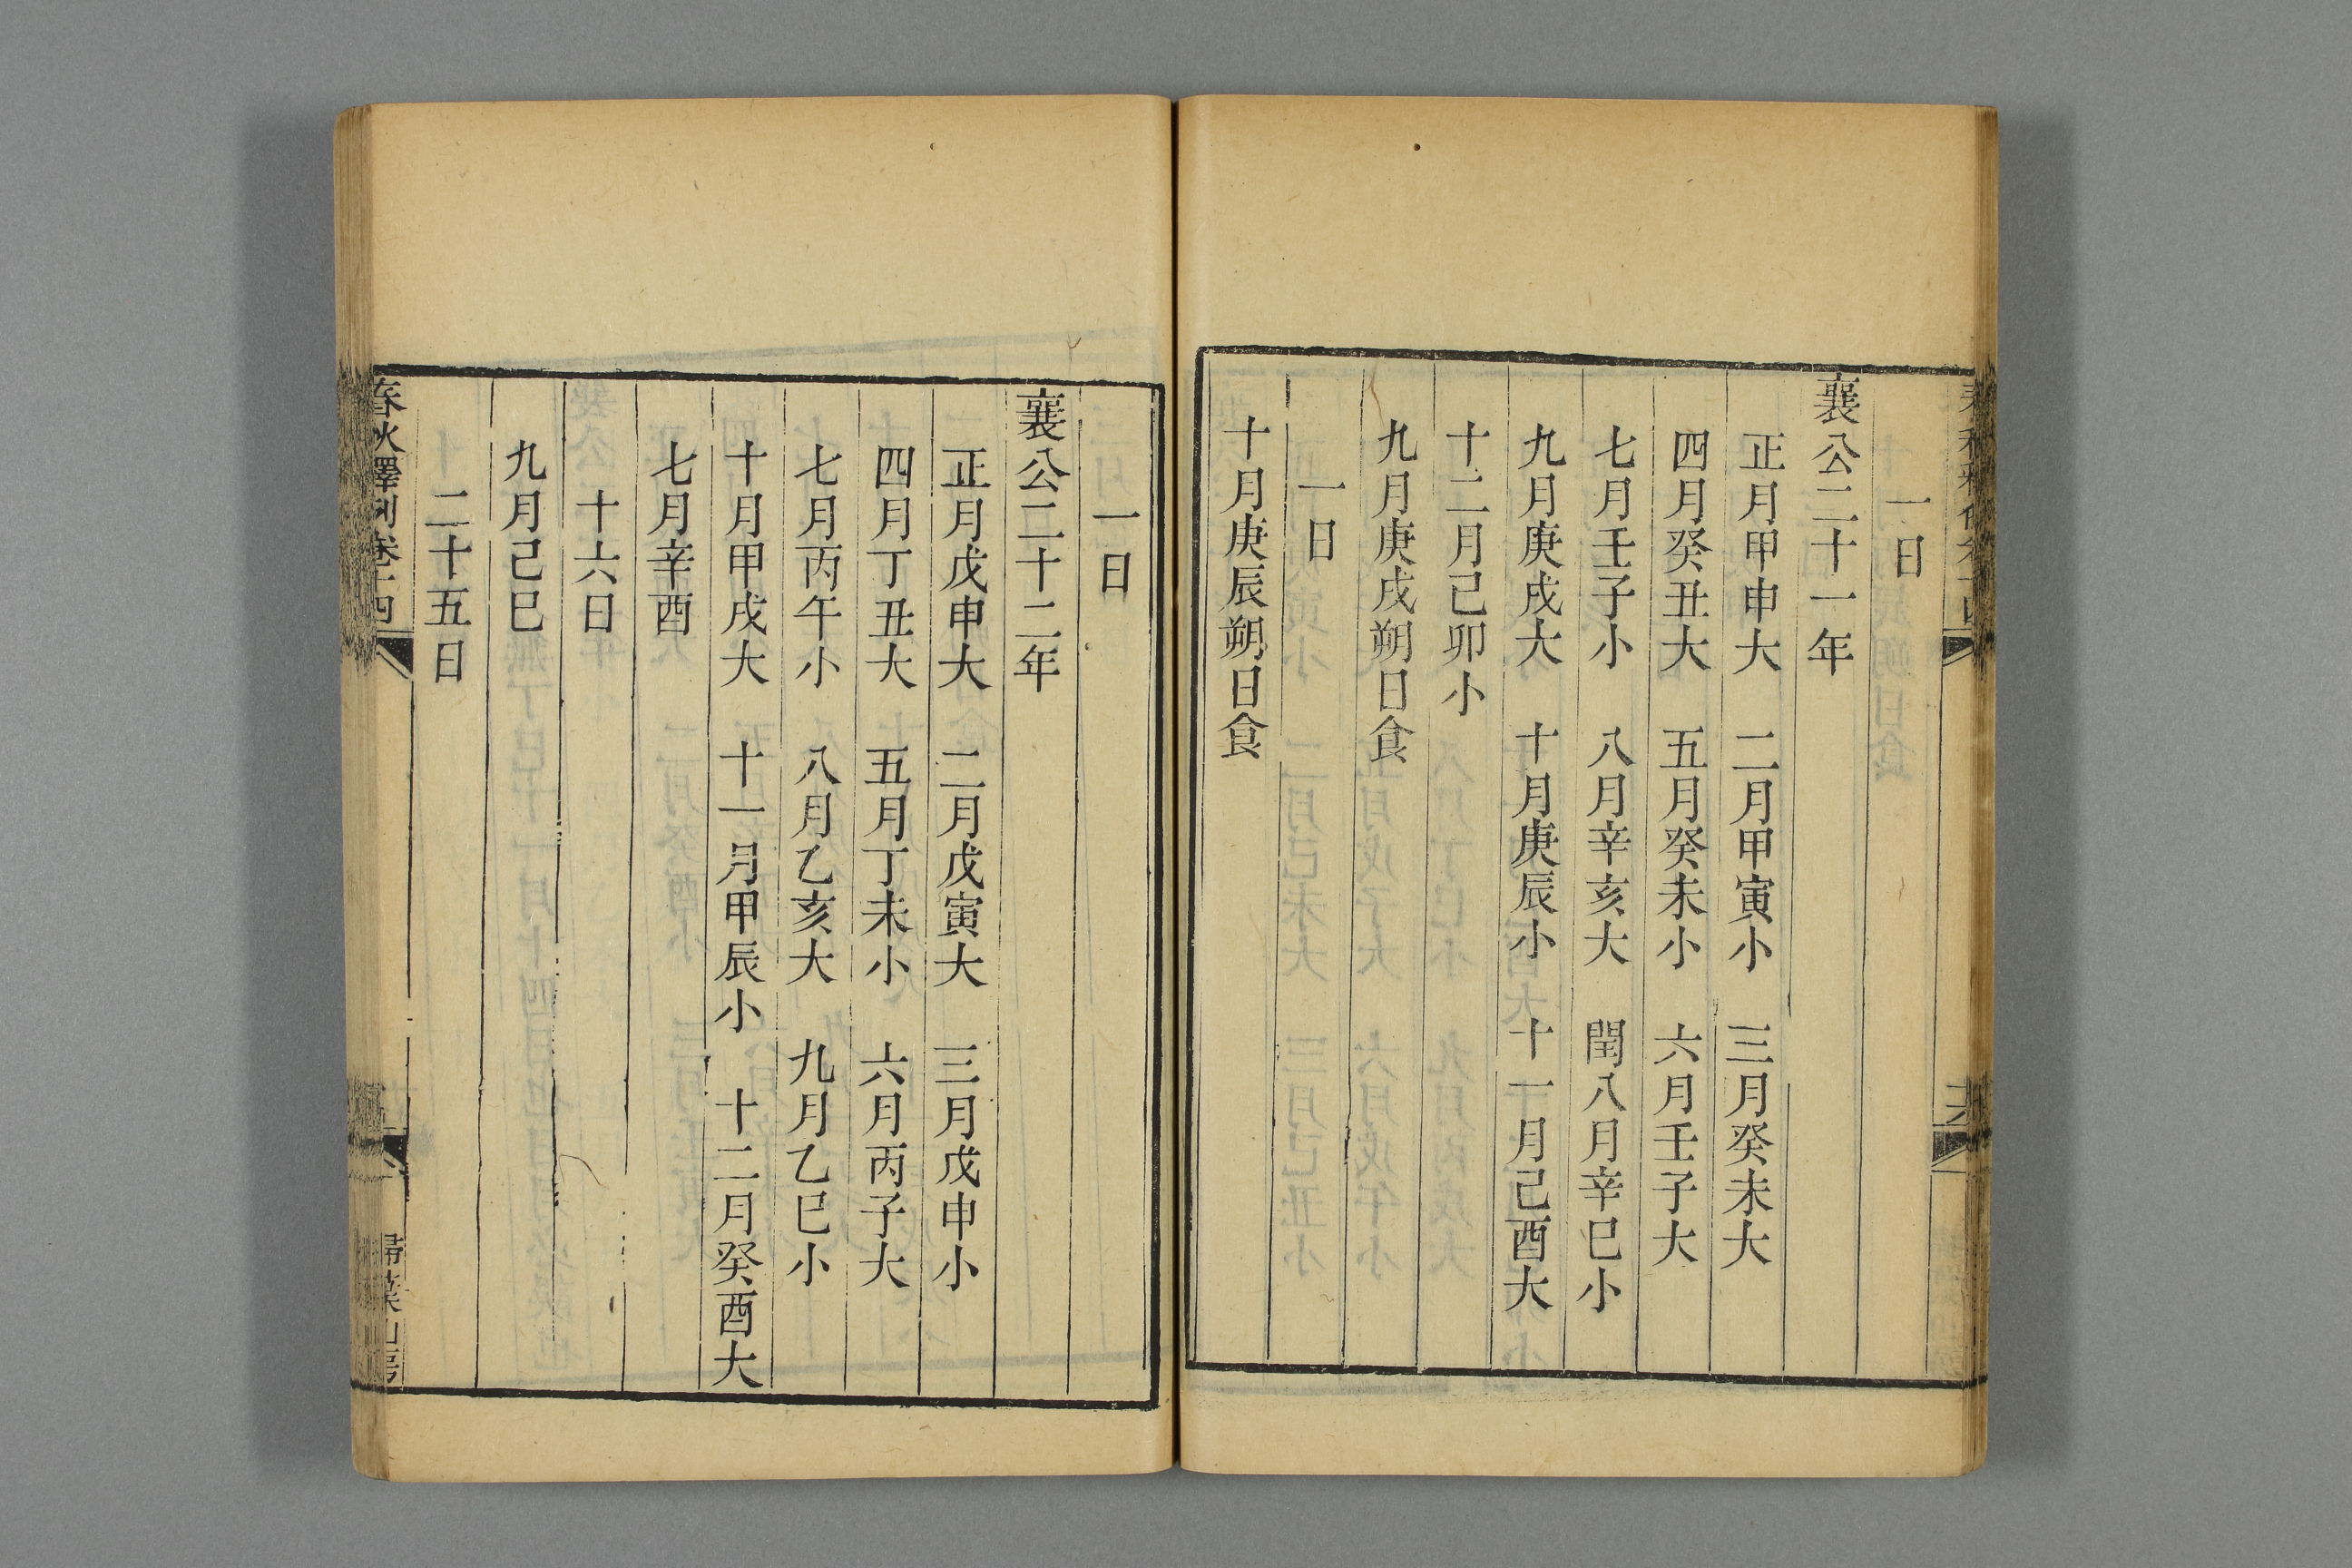 一日
襄公二十一年
正月甲申大　二月甲寅小　三月癸未大
四月癸丑大　五月癸未小　六月壬子大
七月壬子小　八月辛亥大　閏八月辛巳小
九月庚戌大　十月庚辰小　十一月己酉大
十二月己卯小
九月庚戌朔日食
一日
十月庚辰朔日食
一日
襄公二十二年
正月戊申大　二月戊寅大　三月戊申小
四月丁丑大　五月丁未小　六月丙子大
七月丙午小　八月乙亥大　九月乙巳小
十月甲戌大　十一月甲辰小　十二月癸酉大
七月辛酉
十六日
九月己巳
二十五日
春秋釋例卷十四
掃葉山房